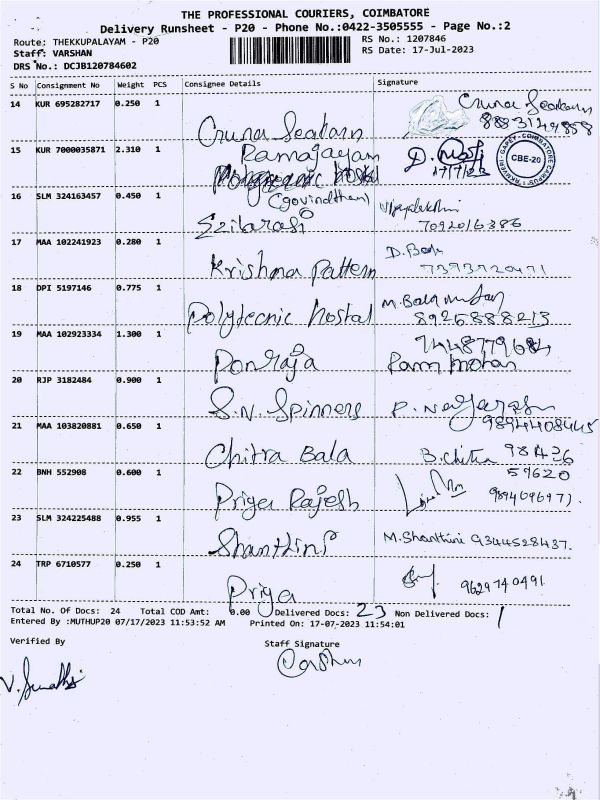 THE PROFESSIONAL COURIERS, COIMBATORE
Delivery Runsheet - P20 - Phone No.:0422-3505555 - Page No.:2
Route: THEKKUPALAYAM - P20 RS No.: 1207846
Staff: VARSHAN RS Date: 17-Jul-2023
DRS No.: DCJB120784602
S No Consignment No Weight PCS Consignee Details Signature
14 KUR 695282717 0.250 1
15 KUR 7000035871 2.310 1 Ramajayam
17/7/23 CBE-20
16 SLM 324163457 0.450 1 (govindhan)
Ezilarasi 7092016386
17 MAA 102241923 0.280 1
Krishna Pattern
18 DPI 5197146 0.775 1
Polytecnic hostal 8925888213
19 MAA 102923334 1.300 1 7448779684
Ponraja Ram mohan
20 RJP 3182484 0.900 1
S.N. Spinners P. Nagarajan
21 MAA 103820881 0.650 1 9894408445
Chitra Bala B. Chitra 98426
22 BNH 552908 0.600 1 59620
Priya Rajesh
23 SLM 324225488 0.955 1
Shanthini M. Shanthini 9344528437.
24 TRP 6710577 0.250 1
Priya 9629740491
Total No. Of Docs: 24 Total COD Amt: 0.00 Delivered Docs: 23 Non Delivered Docs: 1
Entered By :MUTHUP20 07/17/2023 11:53:52 AM Printed On: 17-07-2023 11:54:01
Verified By Staff Signature